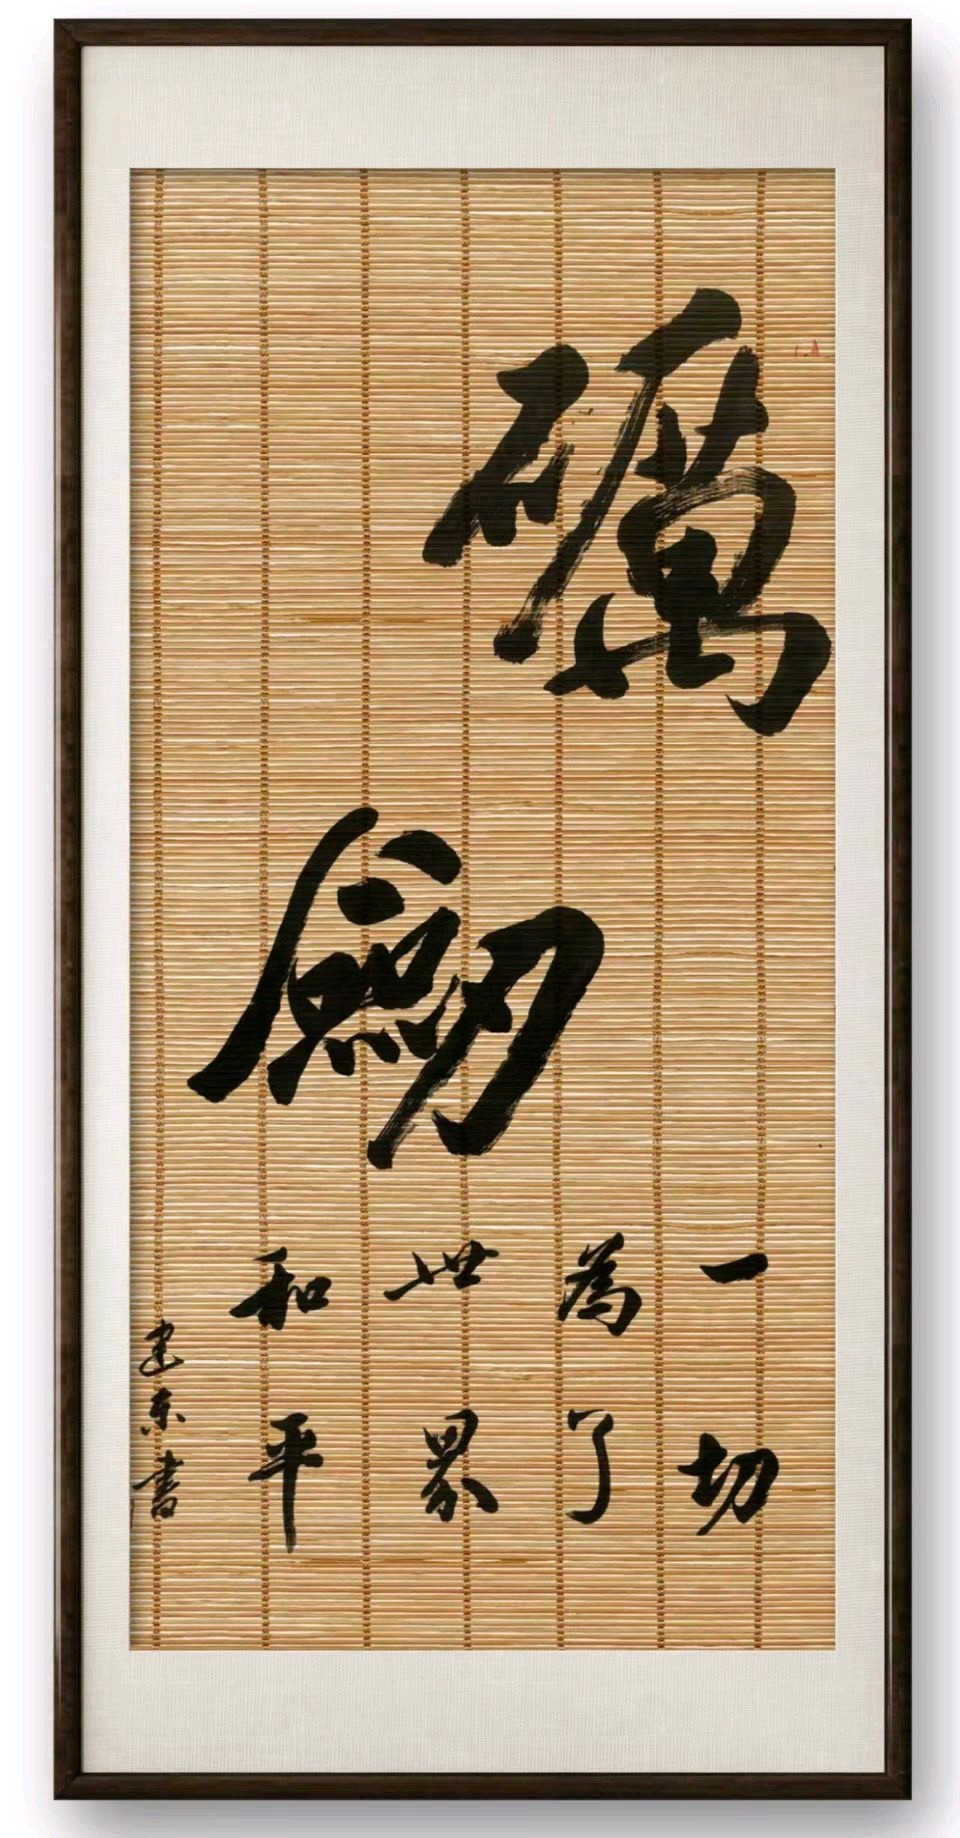 礪
劍
一切
為了
世界
和平
建东書